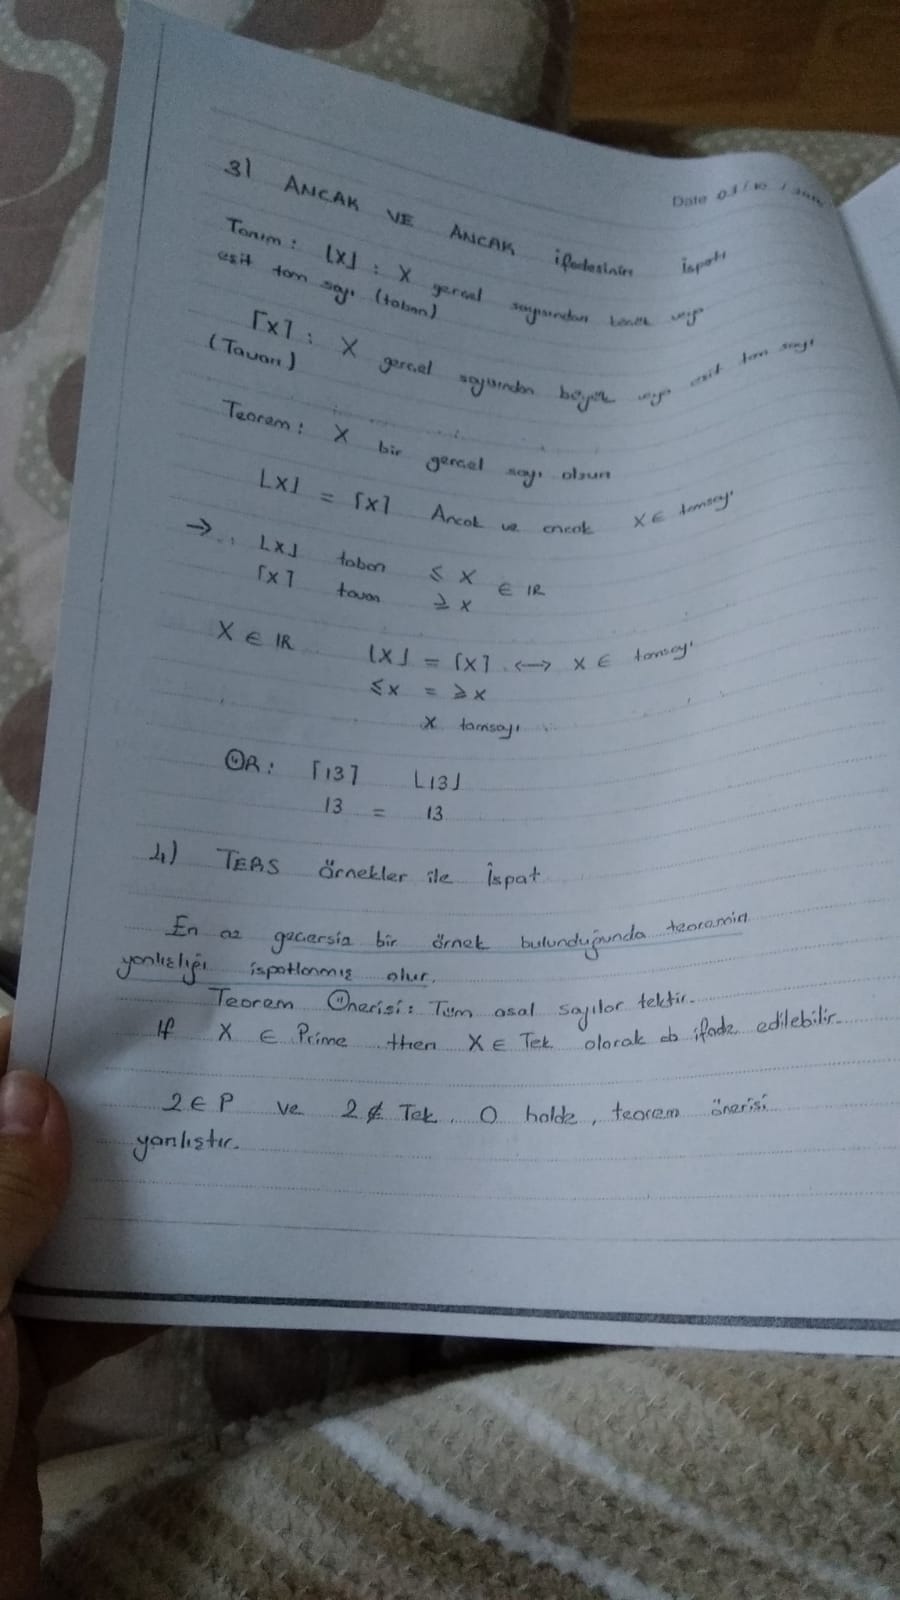 Date 03/10/
3) ANCAK VE ANCAK ifadesinin İspatı
Tanım: ⌊x⌋ : X gercel sayısından küçük veya
esit tam sayı (taban)
⌈x⌉ : X gercel sayısından büyük veya esit tam sayı
(Tavan)
Teorem: X bir gercel sayı olsun
⌊x⌋ = ⌈x⌉ Ancak ve ancak X ∈ tamsayı
→ ⌊x⌋ taban ≤ X ∈ IR
⌈x⌉ tavan ≥ x
X ∈ IR ⌊x⌋ = ⌈x⌉ <-> X ∈ tamsayı
≤x = ≥x
x tamsayı
ÖR: ⌈13⌉ ⌊13⌋
13 = 13
4) TERS örnekler ile İspat
En az gecersiz bir örnek bulunduğunda teoremin
yanlışlığı ispotlanmış olur.
Teorem Önerisi: Tüm asal sayılar tektir.
If X ∈ Prime then X ∈ Tek olarak da ifade edilebilir.
2 ∈ P ve 2 ∉ Tek. O halde, teorem önerisi
yanlıstır.